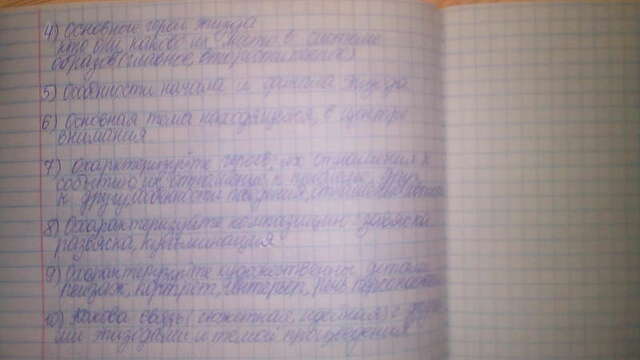 4) Основные герои эпизода
кто они, каково их место в системе
образов (главное, второстепенное)
5) Особенности начала и финала эпизода
6) Основная тема находящуюся, в центре
внимания
7) Охарактеризуйте героев, их отношения к
событию, их отношение к проблеме, друг
к другу,
8) Охарактеризуйте композицию: завязка
развязка, кульминация
9) Охарактеризуйте художественные детали
пейзаж, портрет, интерьер, речь персонажей
10) Какова связь (сюжетная, идейная) с други
ми эпизодами и темой произведения